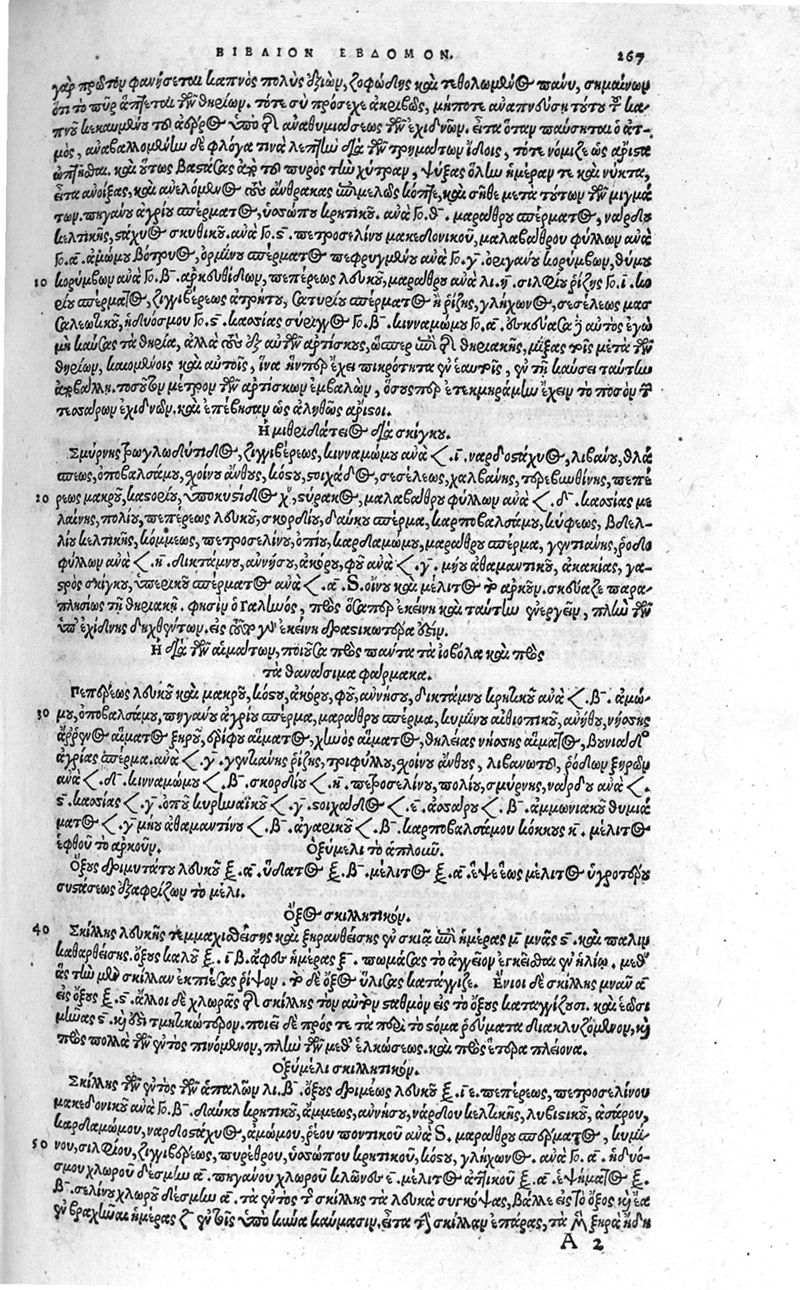 ΒΙΒΛΙΟΝ ΕΒΔΟΜΟΝ. 267
γὰρ πρῶτον φανήσεται καπνὸς πολὺς ἐξιὼν, ζοφώδης καὶ τεθολωμένος πάνυ, σημαίνων
ὅτι τὸ πῦρ ἅπτεται τῶν θηρίων. τότε σὺ πρόσεχε ἀκριβῶς, μήποτε ἀναπνεύσῃ τούτου τοῦ κα-
πνοῦ κεκαυμένου τοῦ ἀέρος ὑπὸ τῆς ἀναθυμιάσεως τῶν ἐχιδνῶν. εἶτα ὅταν παύσηται ὁ ἀτ-
μὸς, ἀναβαλλομένην δὲ φλόγα τινὰ λεπτὴν διὰ τῶν τρημάτων ἴδοις, τότε νόμιζε ὡς ἄριστα
ὠπτῆσθαι. καὶ οὕτως βαστάζας ἀπὸ τοῦ πυρὸς τὴν χύτραν, ψύξας ὅλην ἡμέραν τε καὶ νύκτα,
εἶτα ἀνοίξας, καὶ ἀνελόμενος τοὺς ἄνθρακας ἐπιμελῶς κόπτε, καὶ σῆθε μετὰ τούτων τῶν μιγμά
των. πηγάνου ἀγρίου σπέρματος, ὑσώπου κρητικοῦ. ἀνὰ γο. θ. μαράθρου σπέρματος, νάρδου
κελτικῆς, στάχυος σκυθικοῦ. ἀνὰ γο. ς. πετροσελίνου μακεδονικοῦ, μαλαβάθρου φύλλων ἀνὰ
γο. α. ἀμώμου βότρυος, ὁρμίνου σπέρματος πεφρυγμένου ἀνὰ γο. γ. ὀριγάνου κορύμβων, θύμου
10 κορύμβων ἀνὰ γο. β. ἀρκευθίδων, πεπέρεως λευκοῦ, μαράθρου ἀνὰ λι. η. σιλφίου ῥίζης γο. ι. κο
ρίου σπέρματος, ζιγγιβέρεως ἀτρήτου, σατυρίου σπέρματος ἢ ῥίζης, γλήχωνος, σεσέλεως μασ
σαλεωτικοῦ, ἡδυόσμου γο. ς. κασίας σύριγγος γο. β. κινναμώμου γο. α. ἐσκεύασα δὲ αὐτὸς ἐγὼ
μὴ καύσας τὰ θηρία, ἀλλὰ τοὺς ἐξ αὐτῶν ἀρτίσκους, ὥσπερ ἐπὶ τῆς θηριακῆς, μίξας τοῖς μετὰ τῶν
θηρίων, καιομένοις καὶ αὐτοῖς, ἵνα ἥνπερ ἔχει πικρότητα ἐν ἑαυτοῖς, ἐν τῇ καύσει ταύτην
ἀποβάλῃ. τοσοῦτον μέτρον τῶν ἀρτίσκων ἐμβαλὼν, ὅσουσπερ ἐτεκμηράμην ἔχειν τὸ ποσὸν τῶν
τεσσάρων ἐχιδνῶν, καὶ ἐπέβησαν ὡς ἀληθῶς ἄριστοι.
Ἡ μιθριδάτειος διὰ σκίγκου.
Σμύρνης τρωγλοδύτιδος, ζιγγιβέρεως, κινναμώμου ἀνὰ < . ι. ναρδοστάχυος, λιβάνου, θλά
σπεως, ὀποβαλσάμου, σχοίνου ἄνθους, κόστου, στοιχάδος, σεσέλεως, χαλβάνης, τερεβινθίνης, πεπέ
20 ρεως μακροῦ, καστορίου, ὑποκυστίδος χυλοῦ, στύρακος, μαλαβάθρου φύλλων ἀνὰ < . δ. κασίας με
λαίνης, πολίου, πεπέρεως λευκοῦ, σκορδίου, δαύκου σπέρμα, καρποβαλσάμου, κύφεως, βδελ-
λίου κελτικῆς, κόμμεως, πετροσελίνου, ὀπίου, καρδαμώμου, μαράθρου σπέρμα, γεντιανῆς, ῥόδο
φύλλων ἀνὰ < . η. δικτάμνου, ἀννήσου, ἀκόρου, φοῦ ἀνὰ < . γ. μήου ἀθαμαντικοῦ, ἀκακίας, γα-
στρὸς σκίγκου, ὑπερικοῦ σπέρματος ἀνὰ < . α. S. οἴνου καὶ μέλιτος τὸ ἀρκοῦν. σκεύαζε παρα-
πλησίως τῇ θηριακῇ. φησὶν ὁ γαληνὸς, πρὸς ὅσαπερ ἐκείνη καὶ ταύτην ἐνεργεῖν, πλὴν τῶν
ὑπ' ἐχίδνης δηχθέντων. εἰς τοῦτο γὰρ ἐκείνη δραστικωτέρα ἐστίν.
Ἡ διὰ τῶν αἱμάτων, ποιοῦσα πρὸς πάντα τὰ ἰοβόλα καὶ πρὸς
τὰ θανάσιμα φάρμακα.
Πεπέρεως λευκοῦ καὶ μακροῦ, κόστου, ἀκόρου, φοῦ, ἀννήσου, δικτάμνου κρητικοῦ ἀνὰ < . β. ἀμώ-
30 μου, ὀποβαλσάμου, πηγάνου ἀγρίου σπέρμα, μαράθρου σπέρμα, κυμίνου αἰθιοπικοῦ, ἀνήθου, νήσσης
ἄρρενος αἵματος ξηροῦ, ἐρίφου αἵματος, χηνὸς αἵματος, θηλείας νήσσης αἵματος, βουνιάδος
ἀγρίας σπέρμα. ἀνὰ < . γ. γεντιανῆς ῥίζης, τριφύλλου, σχοίνου ἄνθους, λιβανωτοῦ, ῥόδων ξηρῶν
ἀνὰ < . δ. κινναμώμου < . β. σκορδίου < . η. πετροσελίνου, πολίου, σμύρνης, νάρδου ἀνὰ < .
ς. κασίας < . γ. ὀποῦ κυρηναϊκοῦ < . γ. στοιχάδος < . ε. ἀσάρου < . β. ἀμμωνιακοῦ θυμιά
ματος < . γ. μήου ἀθαμαντίνου < . β. ἀγαρικοῦ < . β. καρποβαλσάμου κόκκους κ. μέλιτος
ἑφθοῦ τὸ ἀρκοῦν. Ὀξύμελι τὸ ἁπλοῦν.
Ὄξους δριμυτάτου λευκοῦ ξ. α. ὕδατος ξ. β. μέλιτος ξ. α. ἕψε ἕως μέλιτος ὑγροτέρου
συστάσεως ἐξαφρίζων τὸ μέλι.
Ὄξος σκιλλητικόν.
40 Σκίλλης λευκῆς τεμμαχισθείσης καὶ ξηρανθείσης ἐν σκιᾷ ἐπὶ ἡμέρας μ. μνᾶς ς. καὶ πάλιν
καθαρθείσης. ὄξους καλοῦ ξ. ιβ. ἄφες ἡμέρας ξ. πωμάσας τὸ ἀγγεῖον ἐγκεῖσθαι ἐν ἡλίῳ. μεθ'
ἃς τὴν μὲν σκίλλαν ἐκπιέσας ῥίψον. τὸ δὲ ὄξος ὑλίσας κατάγγιζε. Ἔνιοι δὲ σκίλλης μνᾶν α.
εἰς ὄξους ξ. ς. ἄλλοι δὲ χλωρᾶς τῆς σκίλλης τὸν αὐτὸν σταθμὸν εἰς τὸ ὄξους καταγγίζουσι. καὶ ἐῶσι
μῆνας ς. καὶ ἔστι τμητικώτερον. ποιεῖ δὲ πρός τε τὰ περὶ τὸ στόμα ῥεύματα διακλυζόμενον, καὶ
πρὸς πολλὰ τῶν ἐντὸς πινόμενον, πλὴν τῶν μεθ' ἑλκώσεως. καὶ πρὸς ἕτερα πλείονα.
Ὀξύμελι σκιλλητικόν.
Σκίλλης τῶν ἐντὸς τῶν ἁπαλῶν λι. β. ὄξους δριμέως λευκοῦ ξ. ιε. πεπέρεως, πετροσελίνου
μακεδονικοῦ ἀνὰ γο. β. δαύκου κρητικοῦ, ἄμμεως, ἀννήσου, νάρδου κελτικῆς, λυβιστικοῦ, ἀσάρου,
καρδαμώμου, ναρδοστάχυος, ἀμώμου, ῥέου ποντικοῦ ἀνὰ S. μαράθρου σπέρματος, κυμί-
50 νου, σιλφίου, ζιγγιβέρεως, πυρέθρου, ὑσώπου κρητικοῦ, κόστου, γλήχωνος. ἀνὰ γο. α. ἡδυό-
σμου χλωροῦ δέσμην α. πηγάνου χλωροῦ κλῶνας ε. μέλιτος ἀττικοῦ ξ. α. ἑψήματος ξ.
β. σελίνου χλωροῦ δέσμην α. τὰ ἐντὸς τῆς σκίλλης τὰ λευκὰ συγκόψας, βάλλε εἰς τὸ ὄξος καὶ ἔα
ἐμβραχῆναι ἡμέρας ζ. ἐν τοῖς ὑπὸ κύνα καύμασιν. εἶτα τὴν σκίλλαν ἐπάρας, τὰ μὲν ξηρὰ ἤδη
A 2